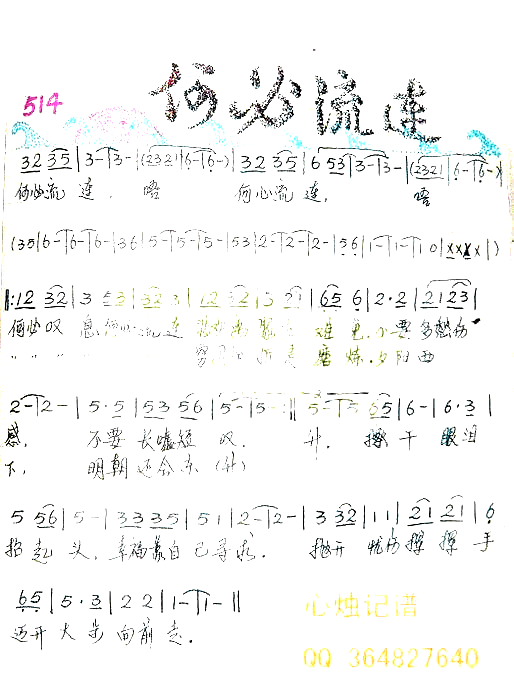 514
何必流连
32 35 | 3- | 3- | (2321 | 6- | 6-) | 32 35 | 6 53 | 3- | 3- | (2321 | 6- | 6-)
何必流 连, 唔 何必流 连, 唔
(35 | 6- | 6- | 6- | 36 | 5- | 5- | 5- | 53 | 2- | 2- | 2- | 56 | 1- | 1- | 1 0 | xx xx | )
‖: 12 32 | 3 53 | 32 3 | 12 32 | 3 21 | 65 6 | 2·2 | 2123 |
何必叹 息, 何必流连 难免, 不要多愁伤
" " " " 磨炼. 夕阳西
2- | 2- | 5·5 | 53 56 | 5- | 5- :‖ 5- | 5 65 | 6- | 6·3 |
感, 不要长嘘短 叹. 升. 擦干眼泪
下, 明朝还会东 (升)
5 56 | 5- | 33 35 | 51 | 2- | 2- | 3 332 | 11 | 21 21 | 6
抬起头, 幸福靠自己寻求. 抛开忧伤挥挥手
65 | 5·3 | 2 2 | 1- | 1- ‖
迈开大步向前走.
心烛记谱
QQ 364827640